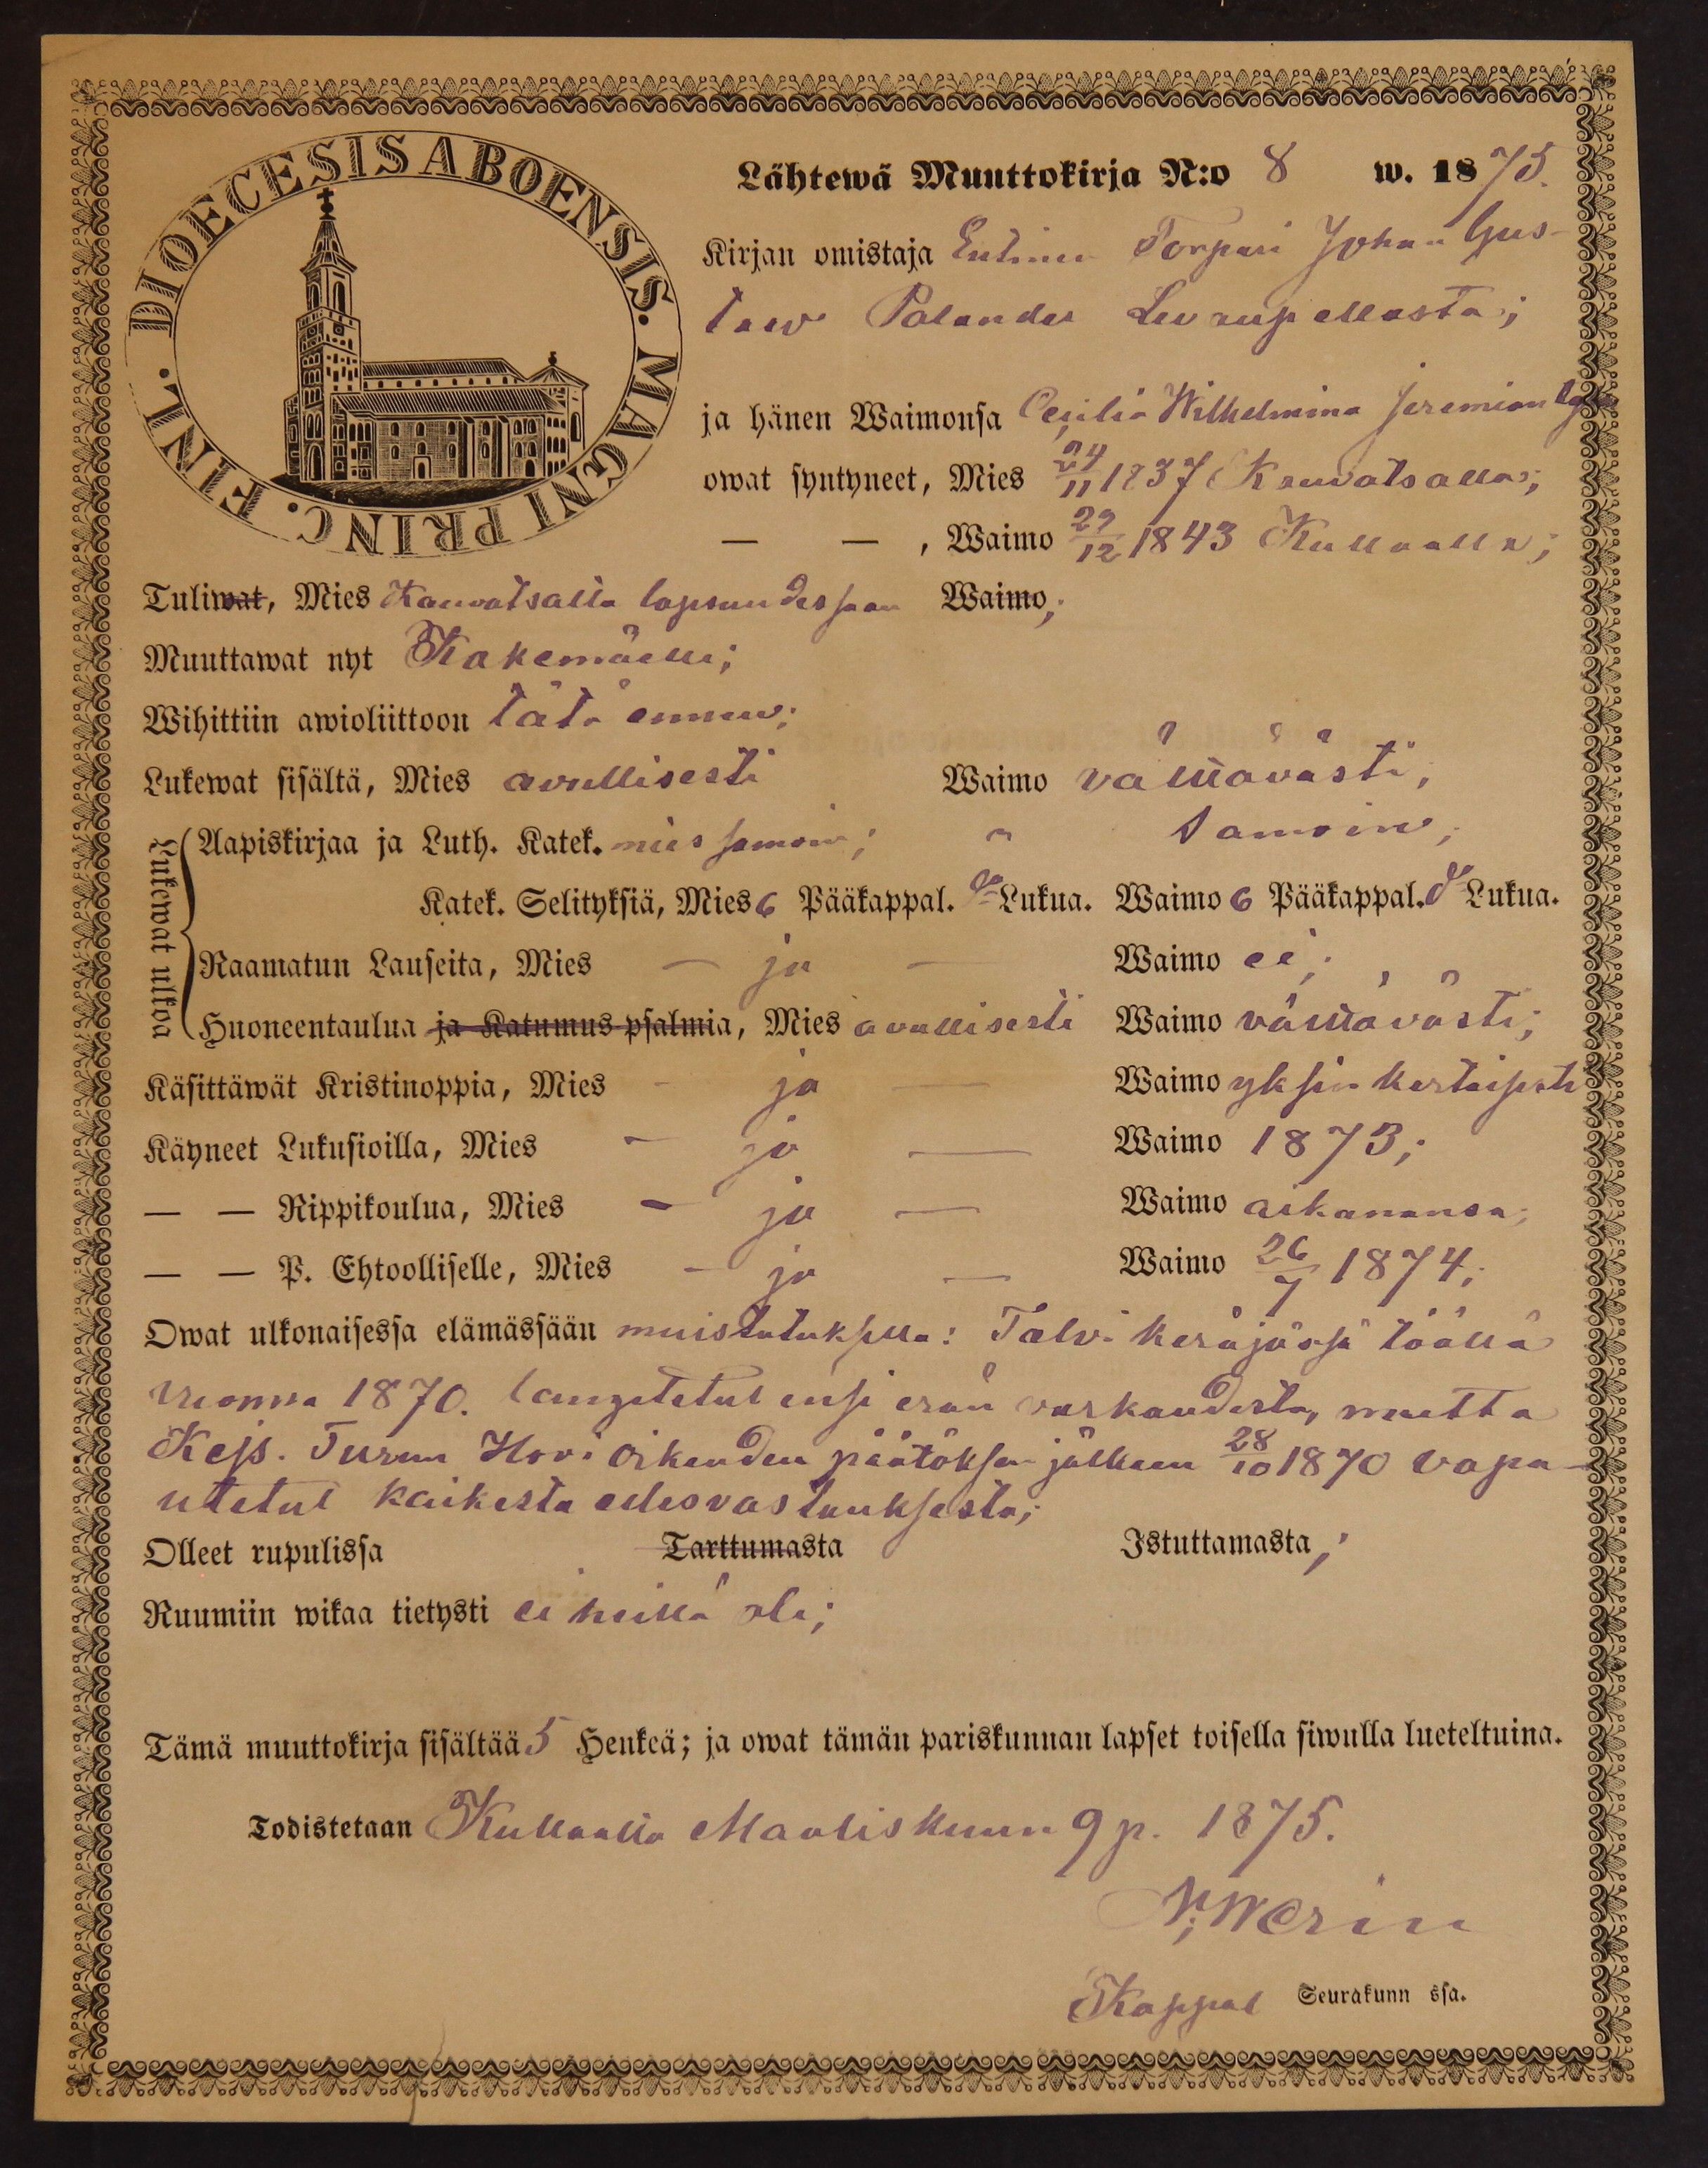 DIOECESIS ABOENSIS. MAGNI PRINC. FINL.
Lähtewä Muuttokirja N:o 8 w. 1875.
Kirjan omistaja Entinen Torpari Johan Gus-
tav Palander Levanpellosta;
ja hänen Waimonsa Cecilia Wilhelmina Jeremian
owat syntyneet, Mies 24/11 1837 Kauvatsalla;
— — , Waimo 29/12 1843 Kullaalla;
Tuliwat, Mies Kauvatsalta lapsuudessaan Waimo;
Muuttawat nyt Kokemäelle;
Wihittiin awioliittoon tätä ennen;
Lukewat sisältä, Mies avullisesti Waimo välttävästi;
Lukewat ulkoa
Aapiskirjaa ja Luth. Katek. mies samoin; " samoin;
Katek. Selityksiä, Mies 6 Pääkappal. Lukua. Waimo 6 Pääkappal. Lukua.
Raamatun Lauseita, Mies — ja — Waimo ei;
Huoneentaulua ja Katumus-psalmia, Mies avullisesti Waimo välttävästi;
Käsittäwät Kristinoppia, Mies - ja — Waimo yksinkertaisesti
Käyneet Lukusioilla, Mies - ja — Waimo 1873;
— — Rippikoulua, Mies - ja — Waimo aikanansa;
— — P. Ehtoolliselle, Mies - ja — Waimo 26/7 1874;
Owat ulkonaisessa elämässään muistutuksella: Talvi käräjässä täällä
vuonna 1870. langetetut ensi erän varkaudesta, mutta
Kejs. Turun Hovi oikeuden päätöksen jälkeen 28/10 1870 vapa-
utetut kaikesta edesvastauksesta;
Olleet rupulissa Tarttumasta Istuttamasta;
Ruumiin wikaa tietysti ei heillä ole;
Tämä muuttokirja sisältää 5 Henkeä; ja owat tämän pariskunnan lapset toisella siwulla lueteltuina.
Todistetaan Kullaalla Maaliskuun 9 p. 1875.
Kappal Seurakunn ssa.